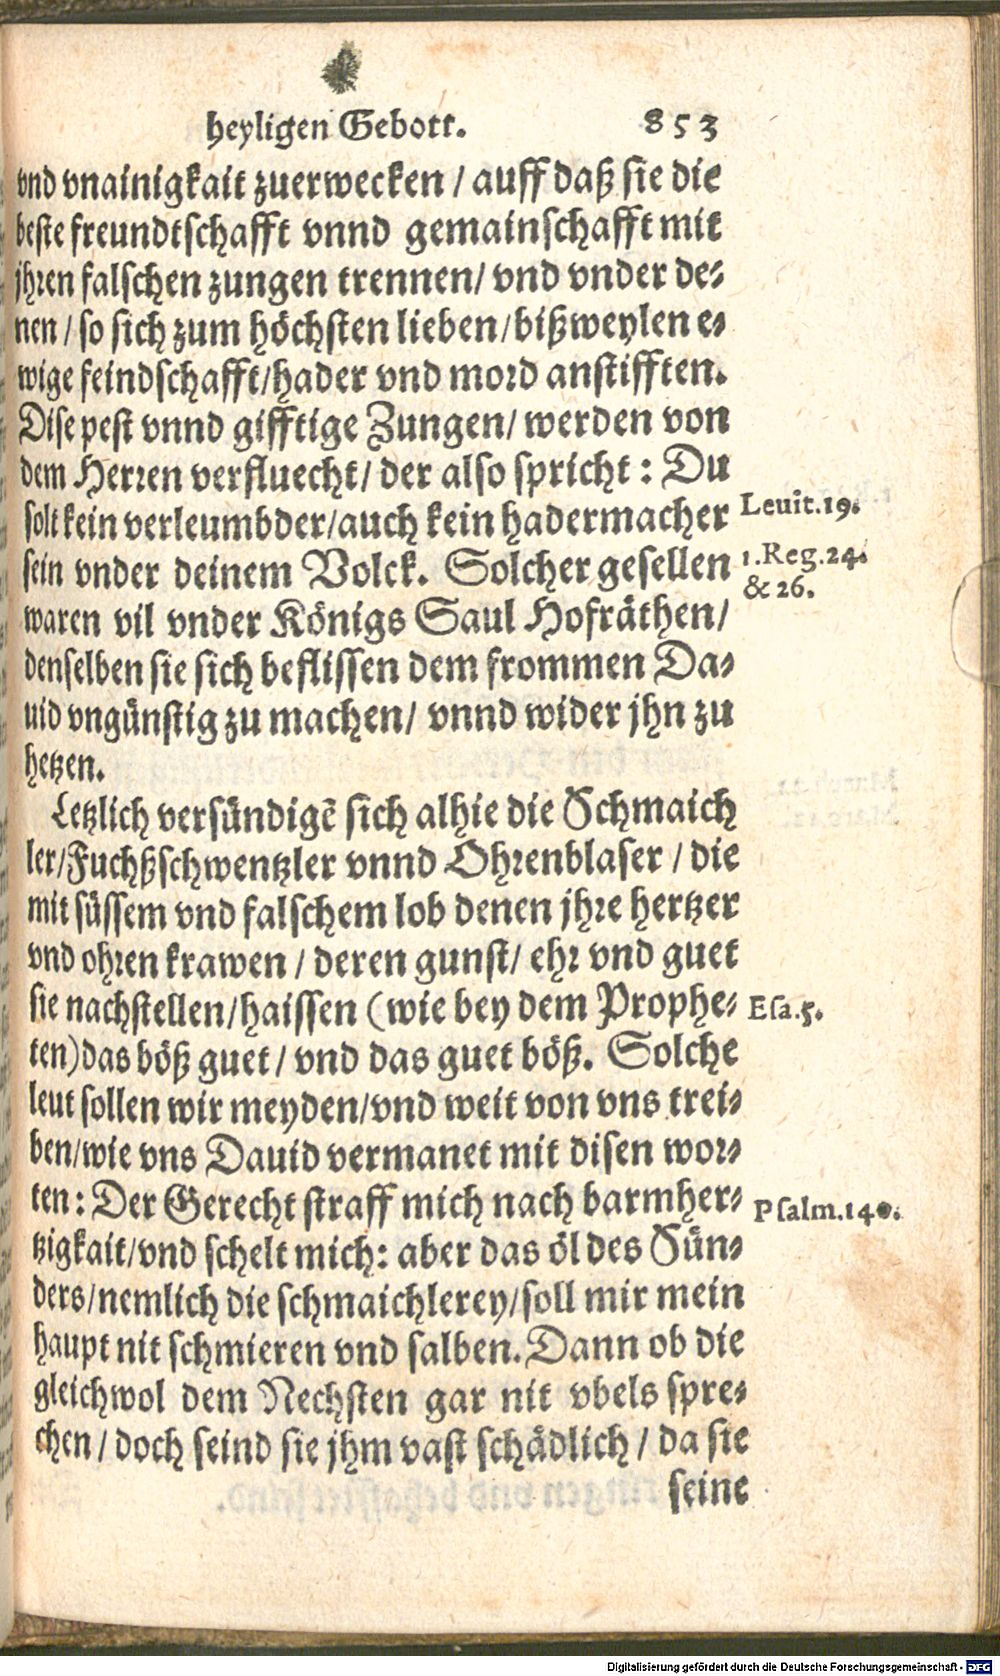 heyligen Gebott. 853
vnd vnainigkait zuerwecken / auff daß sie die
beste freundtschafft vnnd gemainschafft mit
jhren falschen zungen trennen/ vnd vnder de⸗
nen / so sich zum höchsten lieben/bißweylen e⸗
wige feindschafft/hader vnd mord anstifften.
Dise pest vnnd gifftige Zungen/ werden von
dem Herren verfluecht/ der also spricht: Du
solt kein verleumbder/auch kein hadermacher
Leuit.19.
sein vnder deinem Volck. Solcher gesellen
1.Reg.24.
& 26.
waren vil vnder Königs Saul Hofräthen/
denselben sie sich beflissen dem frommen Da⸗
uid vngünstig zu machen/ vnnd wider jhn zu
hetzen.
Letzlich versündigẽ sich alhie die Schmaich
ler/Fuchßschwentzler vnnd Ohrenblaser / die
mit süssem vnd falschem lob denen jhre hertzer
vnd ohren krawen / deren gunst/ ehr vnd guet
sie nachstellen/haissen (wie bey dem Prophe⸗
Esa.5.
ten) das böß guet / vnd das guet böß. Solche
leut sollen wir meyden/vnd weit von vns trei⸗
ben/wie vns Dauid vermanet mit disen wor⸗
ten: Der Gerecht straff mich nach barmher⸗
Psalm.140.
tzigkait/vnd schelt mich: aber das öl des Sün⸗
ders/nemlich die schmaichlerey/soll mir mein
haupt nit schmieren vnd salben. Dann ob die
gleichwol dem Nechsten gar nit vbels spre⸗
chen / doch seind sie jhm vast schädlich / da sie
seine
Digitalisierung gefördert durch die Deutsche Forschungsgemeinschaft - DFG